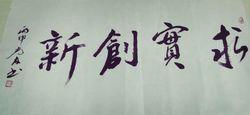 求實創新
丙申
書